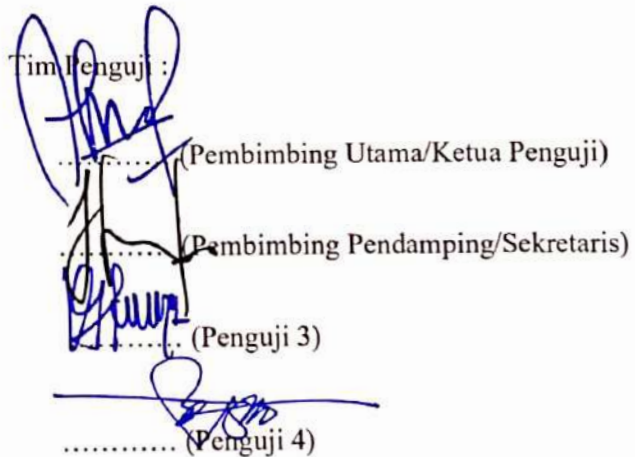 Tim Penguji :
............ (Pembimbing Utama/Ketua Penguji)
............ (Pembimbing Pendamping/Sekretaris)
............ (Penguji 3)
............ (Penguji 4)